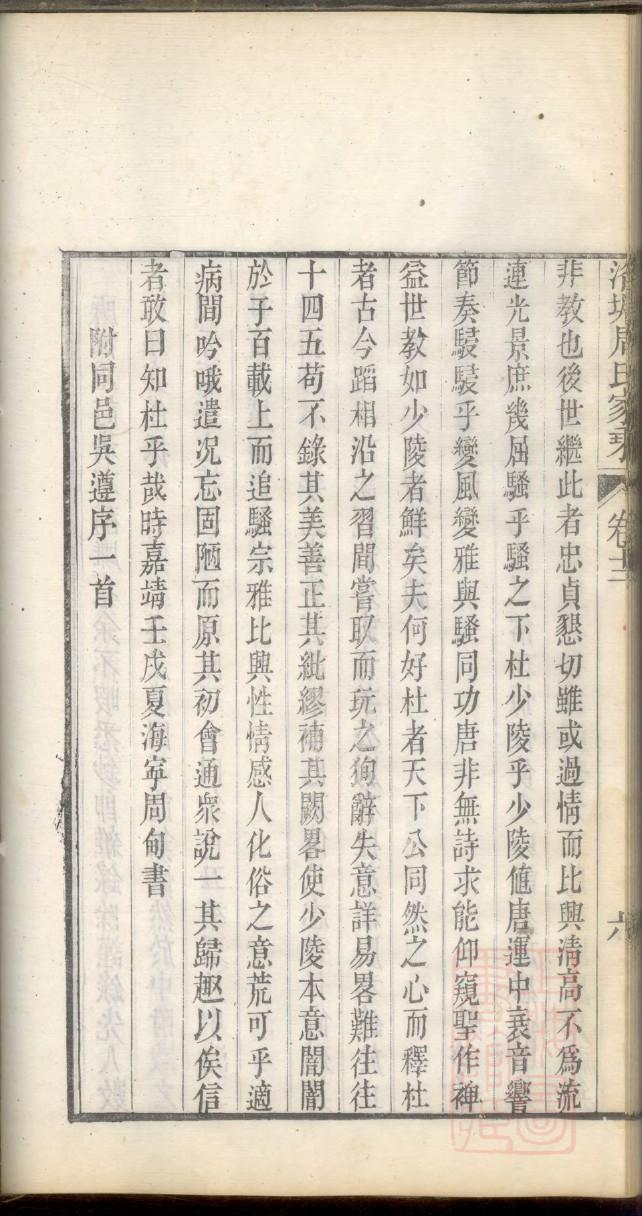 洛塘周氏家乘 卷十二 六
非教也後世繼此者忠貞懇切雖或過情而比興清高不爲流
連光景庶幾屈騷乎騷之下杜少陵乎少陵値唐運中衰音響
節奏駸駸乎變風變雅與騷同功唐非無詩求能仰窺聖作裨
益世教如少陵者鮮矣夫何好杜者天下公同然之心而釋杜
者古今蹈相沿之習間嘗取而玩之狥辭失意詳易畧難往往
十四五苟不錄其美善正其紕繆補其闕畧使少陵本意闇闇
於千百載上而追騷宗雅比興性情感人化俗之意荒可乎適
病間吟哦遣况忘固陋而原其初會通衆說一其歸趣以俟信
者敢曰知杜乎哉時嘉靖壬戌夏海寧周甸書
附同邑吳遵序一首